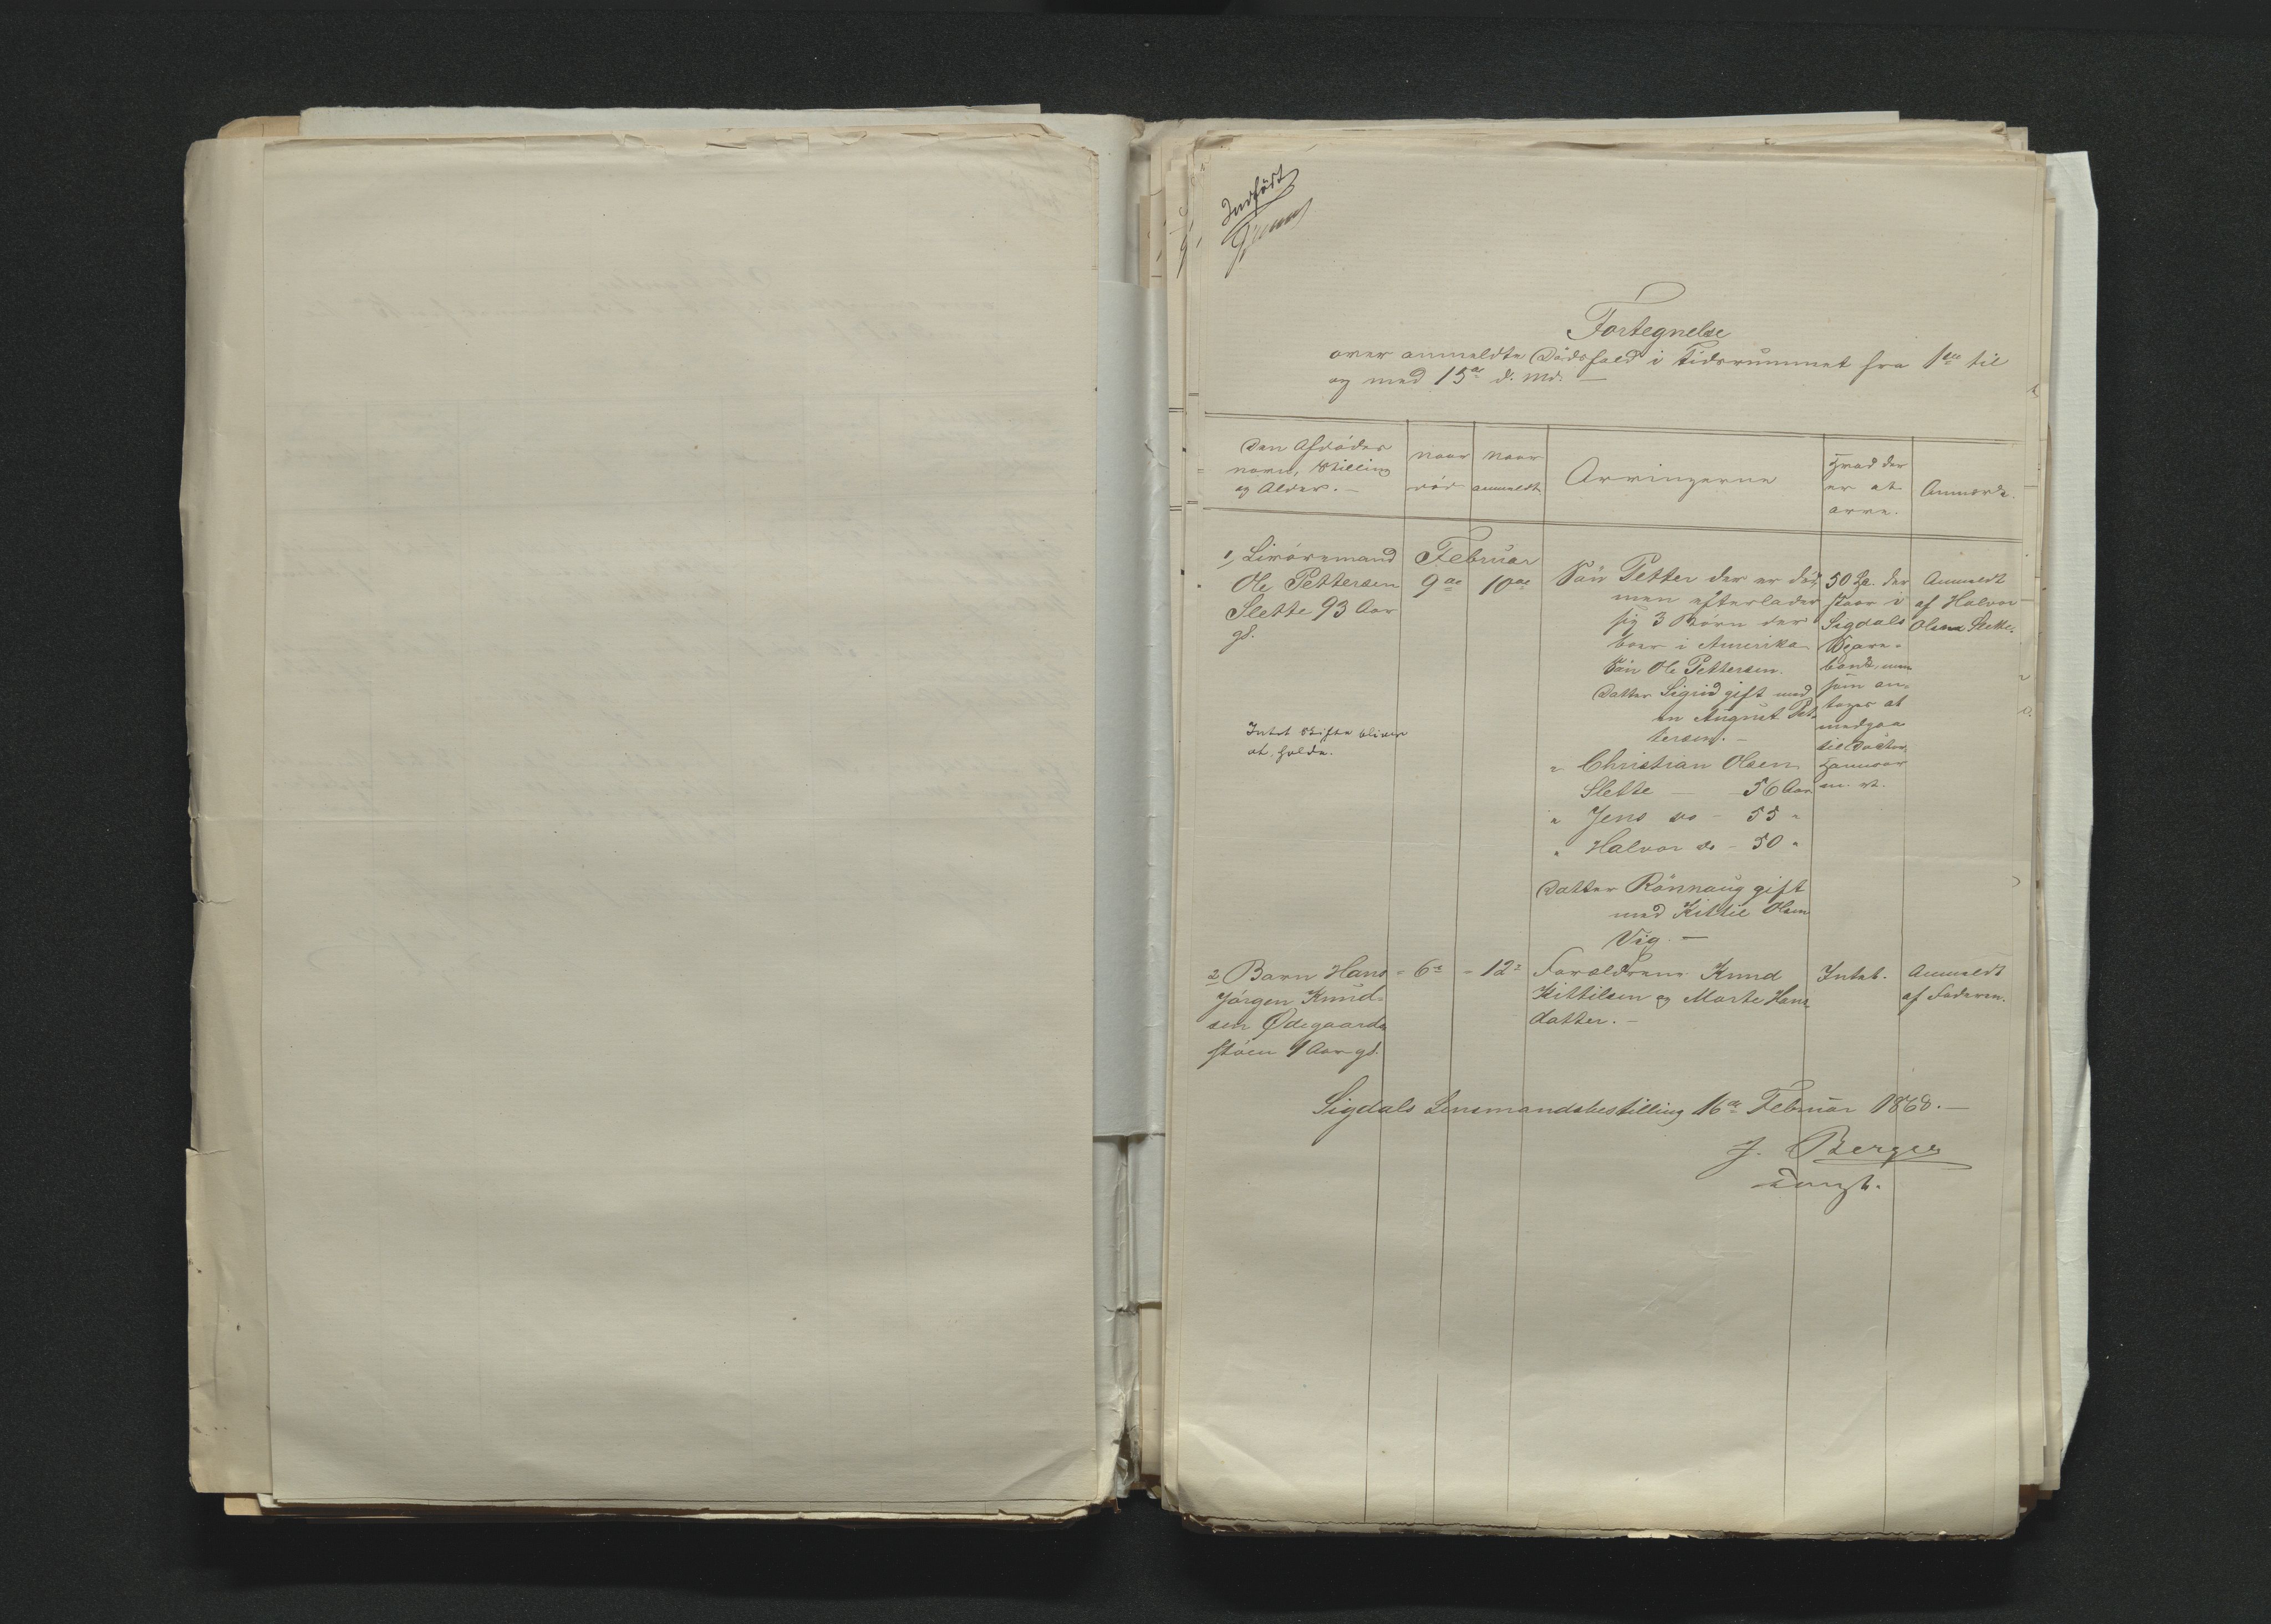 Indført
Fortegnelse
over anmeldte Dødsfald i Tidsrummet fra 1ste til
og med 15de d. Md. —
Den Afdødes
navn, Stilling
og Alder. —
naar
død
naar
anmeldt
Arvingerne
Hvad der
er at
arve.
Anmærk.
1, Livøremand
Ole Pettersen
Slette 93 Aar
gl.
Februar
9de
10de
Søn Petter der er død
men efterlader
sig 3 Børn der
boer i Amerika
Søn Ole Pettersen.
Datter Sigrid gift med
en August Pet-
tersen. —
" Christian Olsen
Slette — 56 Aar
" Jens do - 55 "
" Halvor do - 50 "
Datter Rønnaug gift
med Kittil Olsen
Vig. —
50 Spd. der
staar i
Sigdals
Spare-
bank, men
som an-
tages at
medgaa
til Doctor,
m. v.
Anmeldt
af Halvor
Olsen Slette.
Intet Skifte bliver
at holde.
2 Barn Hans
Jørgen Knud-
sen Ødegaards
støen 1 Aar gl.
" 6te
" 12te
Forældrene Knud
Kittilsen og Marte Hans
datter. —
Intet.
Anmeldt
af Faderen.
Sigdals Lensmandsbestilling 16de Februar 1868. —
J. Berger